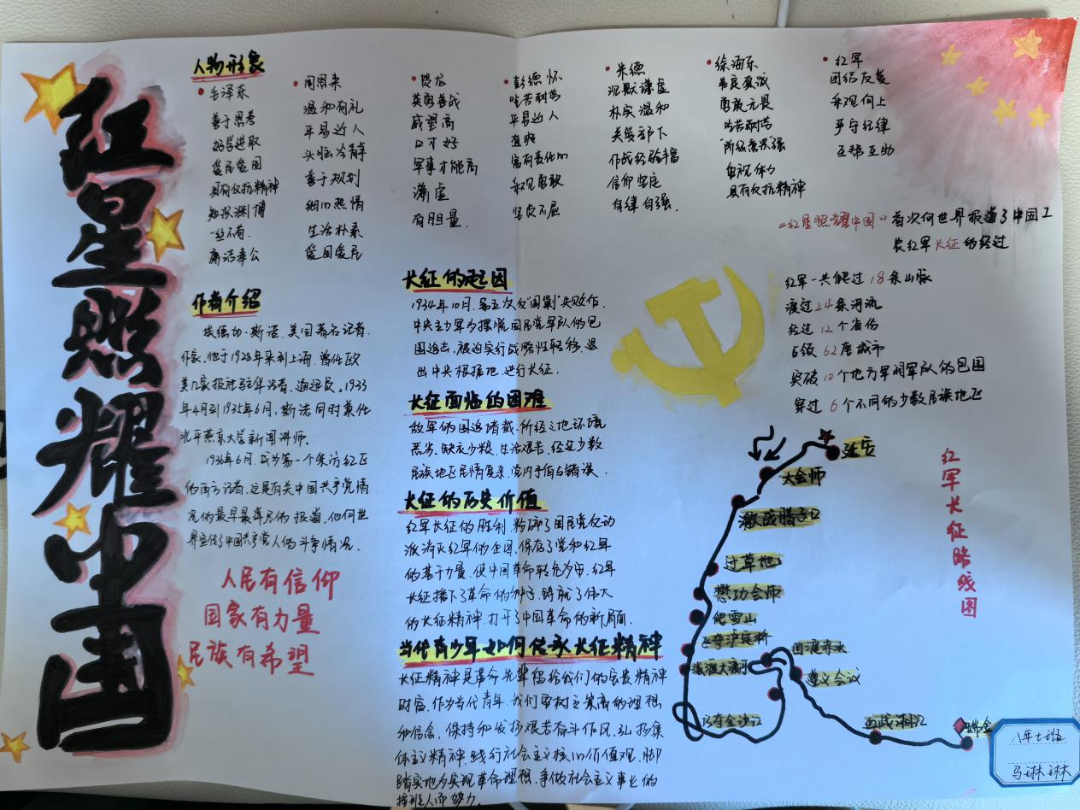 红星照耀中国
人物形象
毛泽东
善于思考
爱民爱国
具有反抗精神
知识渊博
一丝不苟
廉洁奉公
周恩来
温和有礼
平易近人
头脑冷静
善于规划
细心热情
生活朴素
爱国爱民
贺龙
英勇善战
威望高
口才好
军事才能高
谦虚
有胆量
彭德怀
吃苦耐劳
平易近人
直爽
富有责任心
乐观勇敢
坚贞不屈
朱德
沉默谦虚
朴实温和
关爱部下
作战经验丰富
信仰坚定
自律自强
徐海东
善良真诚
勇敢无畏
吃苦耐劳
阶级意识强
重视体力
具有反抗精神
红军
团结友爱
乐观向上
严守纪律
互帮互助
《红星照耀中国》首次向世界报道了中国工
农红军长征的经过
作者介绍
埃德加·斯诺,美国著名记者,
作家。他于1928年来到上海,曾任欧
美几家报社驻华记者、通讯员。1933
年4月到1935年6月,斯诺同时兼任
北平燕京大学新闻讲师。
1936年6月,成为第一个采访红区
的西方记者,这是有关中国共产党情
况的最早最详尽的报道,他向世
界宣传了中国共产党人的斗争情况。
人民有信仰
国家有力量
民族有希望
长征的起因
1934年10月,第五次反“围剿”失败后,
中央主力军为摆脱国民党军队的包
围追击,被迫实行战略性转移,退
出中央根据地,进行长征。
长征面临的困难
敌军的围追堵截,所经之地环境
恶劣,缺衣少粮,生活艰苦,经过少数
民族地区民情复杂,党内矛盾与错误。
长征的历史价值
红军长征的胜利,粉碎了国民党反动
派消灭红军的企图,保存了党和红军
的基干力量,使中国革命转危为安,红军
长征播下了革命的种子,铸就了伟大
的长征精神,打开了中国革命的新局面。
当代青少年如何传承长征精神
长征精神是革命先辈留给我们的宝贵精神
财富。作为当代青年,我们要树立崇高的理想
和信念,保持和发扬艰苦奋斗作风,弘扬集
体主义精神,践行社会主义核心价值观,脚
踏实地为实现革命理想,争做社会主义事业的
接班人而努力。
红军一共爬过18条山脉
渡过24条河流
经过12个省份
占领62座城市
突破10个地方军阀军队的包围
穿过6个不同的少数民族地区
红军长征路线图
延安
大会师
激战腊子口
过草地
懋功会师
爬雪山
飞夺泸定桥
强渡大渡河
巧夺金沙江
四渡赤水
遵义会议
血战湘江
瑞金
八年七班
马琳琳